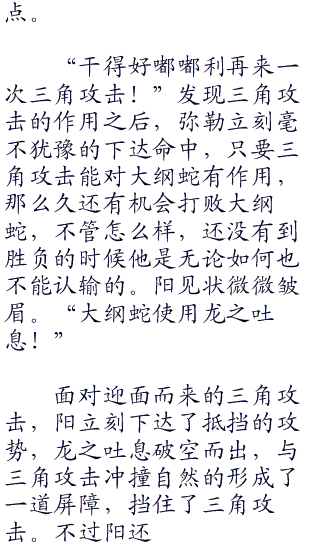 点。
“干得好嘟嘟利再来一
次三角攻击！”发现三角攻
击的作用之后，弥勒立刻毫
不犹豫的下达命中，只要三
角攻击能对大纲蛇有作用，
那么久还有机会打败大纲
蛇，不管怎么样，还没有到
胜负的时候他是无论如何也
不能认输的。阳见状微微皱
眉。“大纲蛇使用龙之吐
息！”
面对迎面而来的三角攻
击，阳立刻下达了抵挡的攻
势，龙之吐息破空而出，与
三角攻击冲撞自然的形成了
一道屏障，挡住了三角攻
击。不过阳还